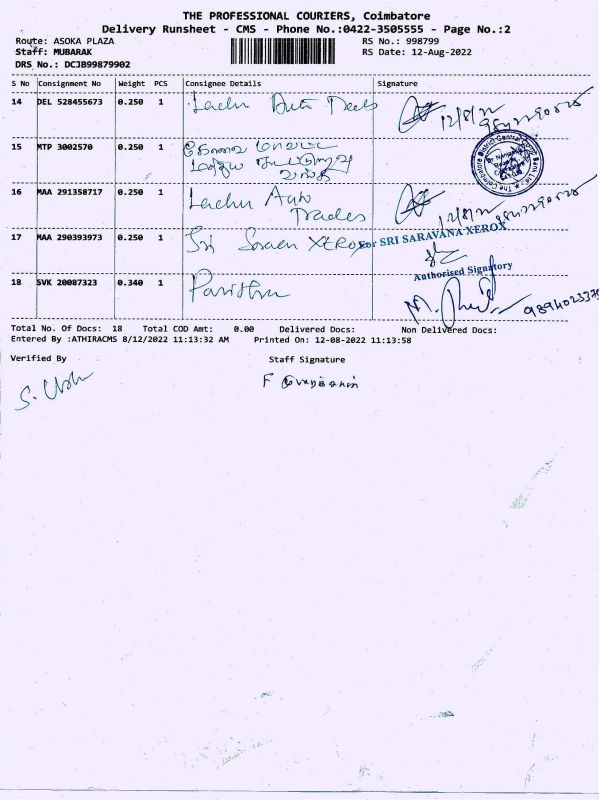 THE PROFESSIONAL COURIERS, Coimbatore
Delivery Runsheet - CMS - Phone No.:0422-3505555 - Page No.:2
Route: ASOKA PLAZA
Staff: MUBARAK
DRS No.: DCJB99879902
RS No.: 998799
RS Date: 12-Aug-2022
S No Consignment No Weight PCS Consignee Details Signature
14 DEL 528455673 0.250 1
12/8/22
15 MTP 3002570 0.250 1 கோவை மாவட்ட
மத்திய கூட்டுறவு
வங்கி
16 MAA 291358717 0.250 1 Lachu Auto
Trades
12/8/22
17 MAA 290393973 0.250 1 Sri XEROX For SRI SARAVANA XEROX
Authorised Signatory
18 SVK 20087323 0.340 1 Pavithra
Total No. Of Docs: 18 Total COD Amt: 0.00 Delivered Docs: Non Delivered Docs:
Entered By :ATHIRACMS 8/12/2022 11:13:32 AM Printed On: 12-08-2022 11:13:58
Verified By Staff Signature